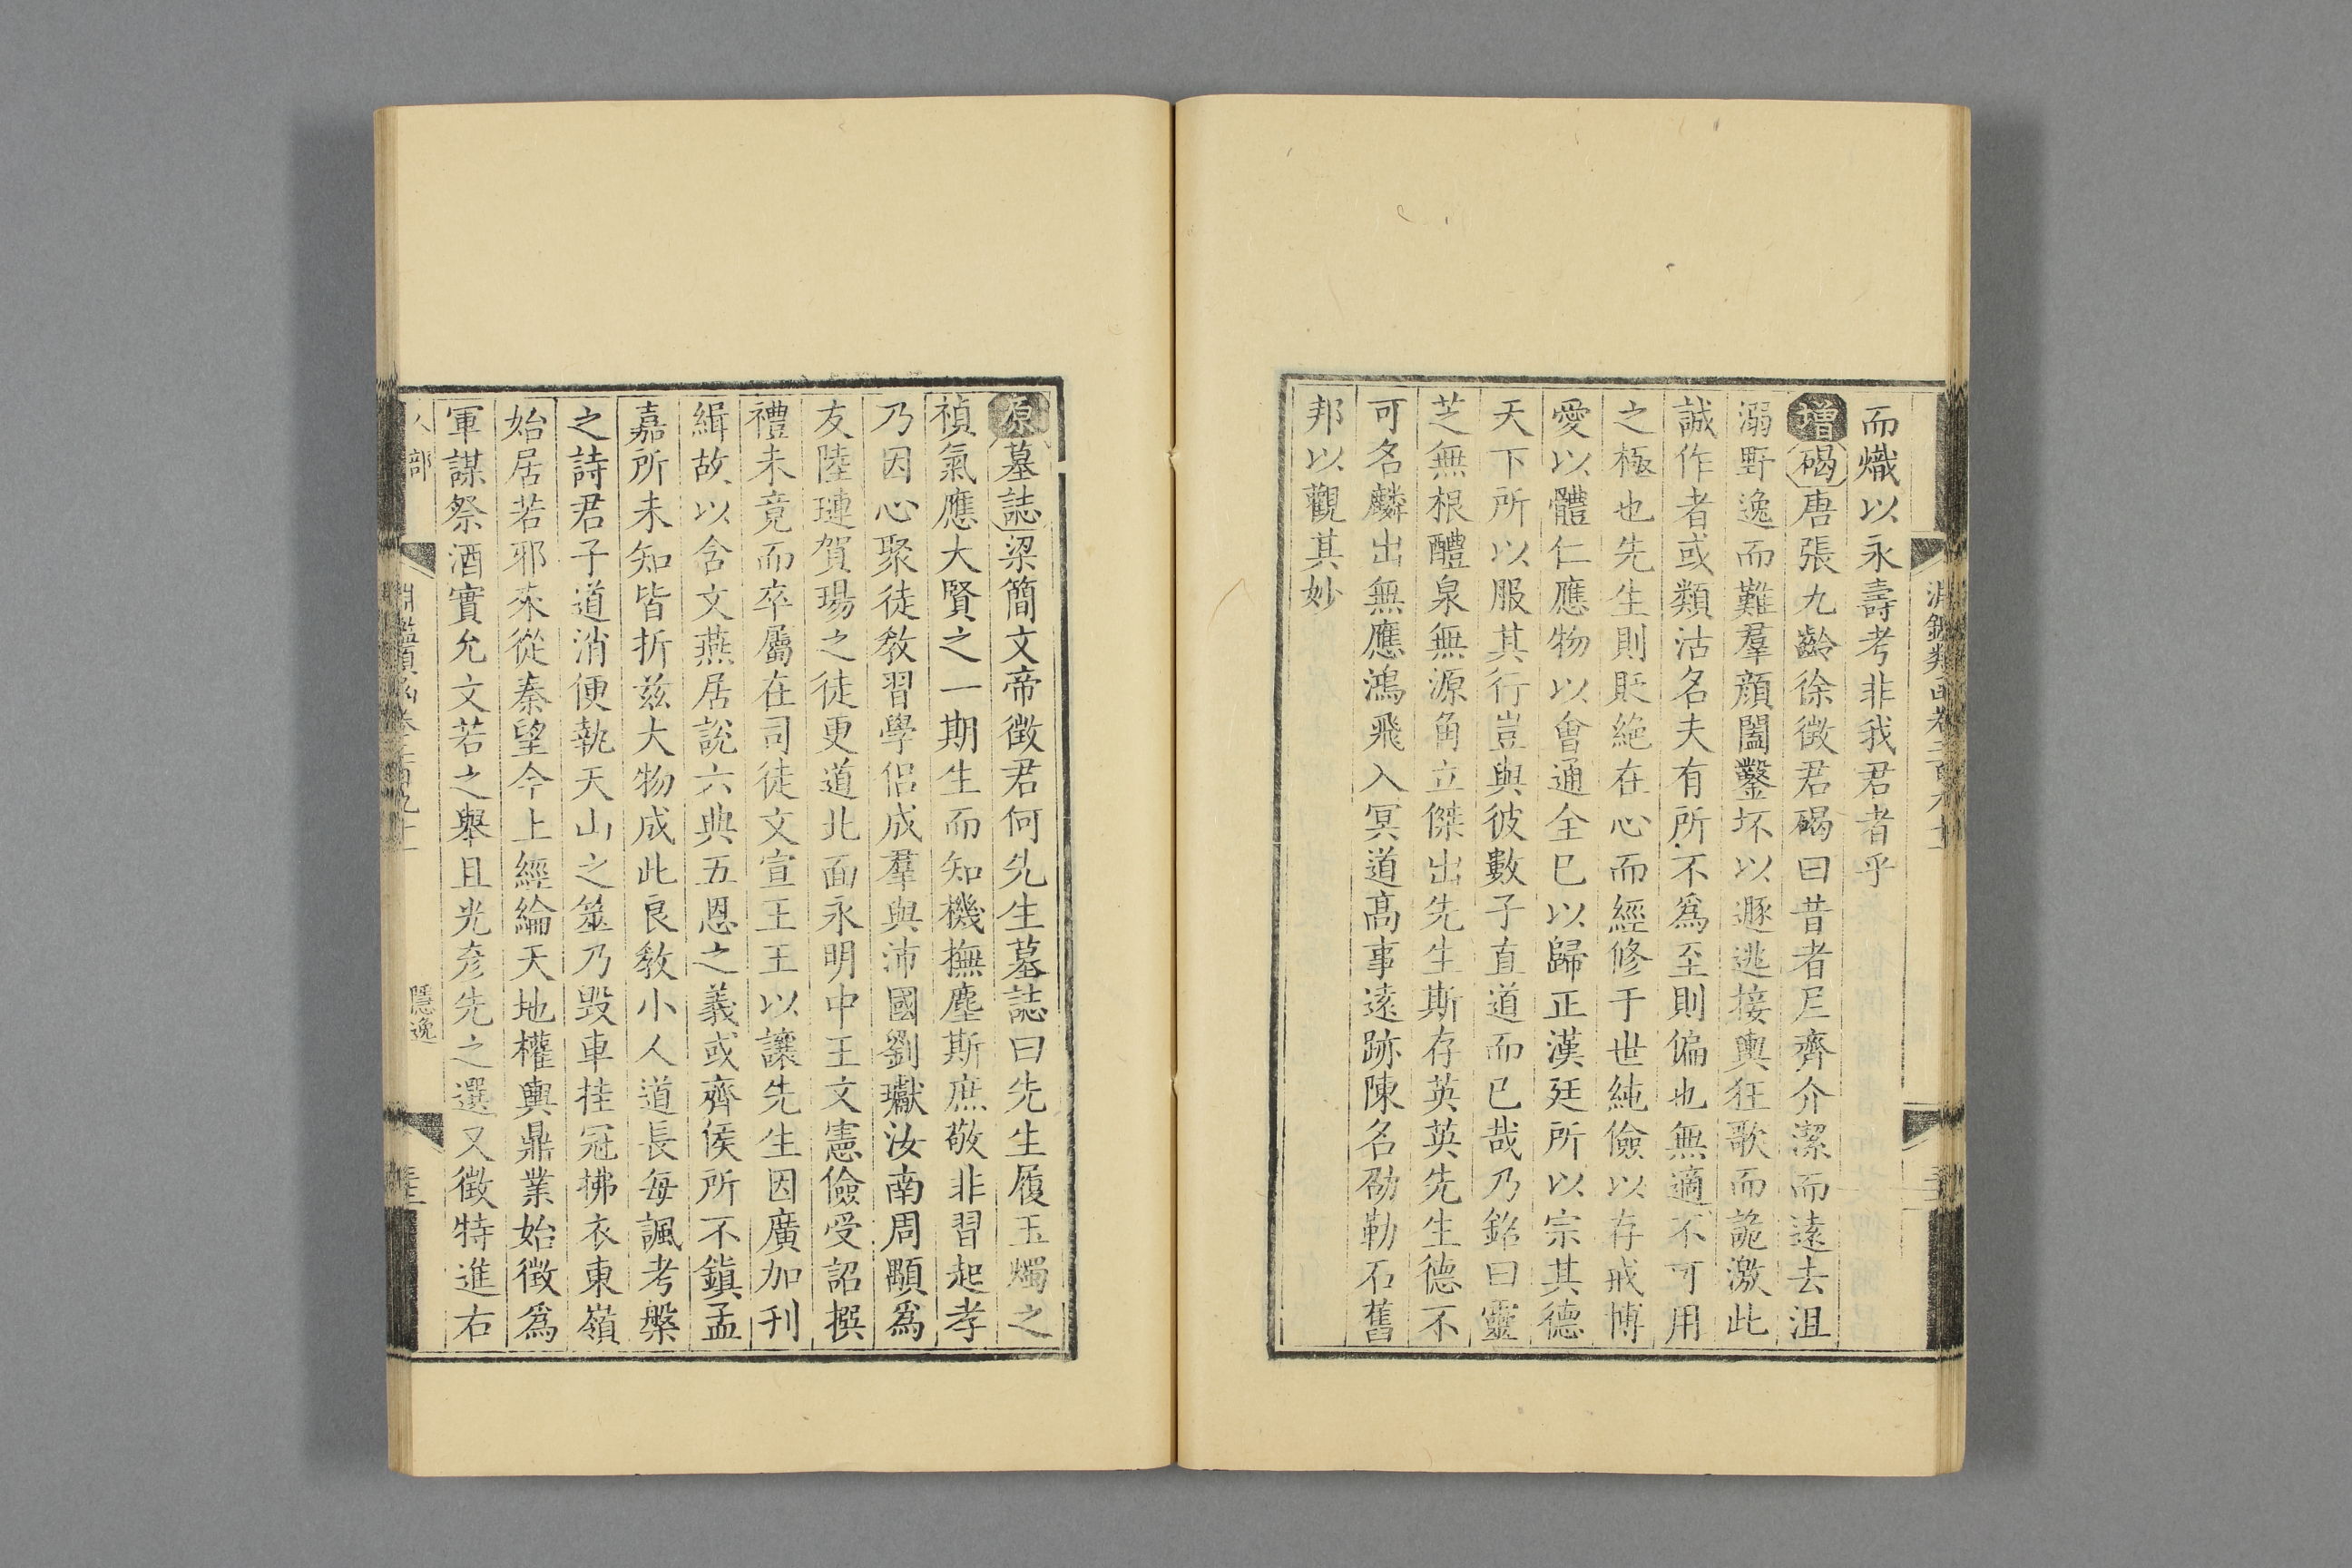 而熾以永壽考非我君者乎
增碣唐張九齡徐徵君碣曰昔者尼齊介潔而遠去沮
溺野逸而難羣顔闔鑿坏以遯逃接輿狂歌而詭激此
誠作者或類沽名夫有所不爲至則偏也無適不可用
之極也先生則貶絶在心而經修于世純儉以存戒博
愛以體仁應物以會通全已以歸正漢廷所以宗其德
天下所以服其行豈與彼數子直道而已哉乃銘曰靈
芝無根醴泉無源角立傑出先生斯存英英先生德不
可名麟出無應鴻飛入冥道高事遠跡陳名劭勒石舊
邦以觀其妙
原墓誌梁簡文帝徵君何先生墓誌曰先生履玉燭之
禎氣應大賢之一期生而知機撫塵斯庶敬非習起孝
乃因心聚徒敎習學侶成羣與沛國劉瓛汝南周顒爲
友陸璉賀瑒之徒更道北面永明中王文憲儉受詔撰
禮未竟而卒屬在司徒文宣王王以讓先生因廣加刋
緝故以含文燕居說六典五恩之義或齊侯所不鎭孟
嘉所未知皆折兹大物成此良敎小人道長每諷考槃
之詩君子道消便執天山之筮乃毀車挂冠拂衣東嶺
始居若邪來從秦望今上經綸天地權輿鼎業始徵爲
軍謀祭酒實允文若之舉且光彥先之選又徵特進右
人部
隱逸